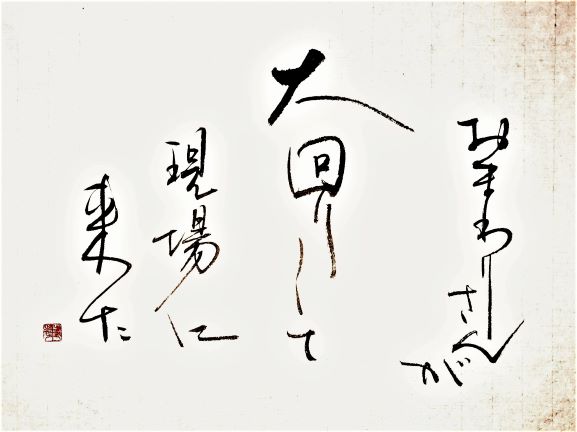 おまわりさんが
大回りして
現場に
来た